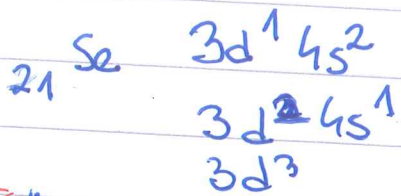 ₂₁Se 3d¹ 4s²
3d² 4s¹
3d³